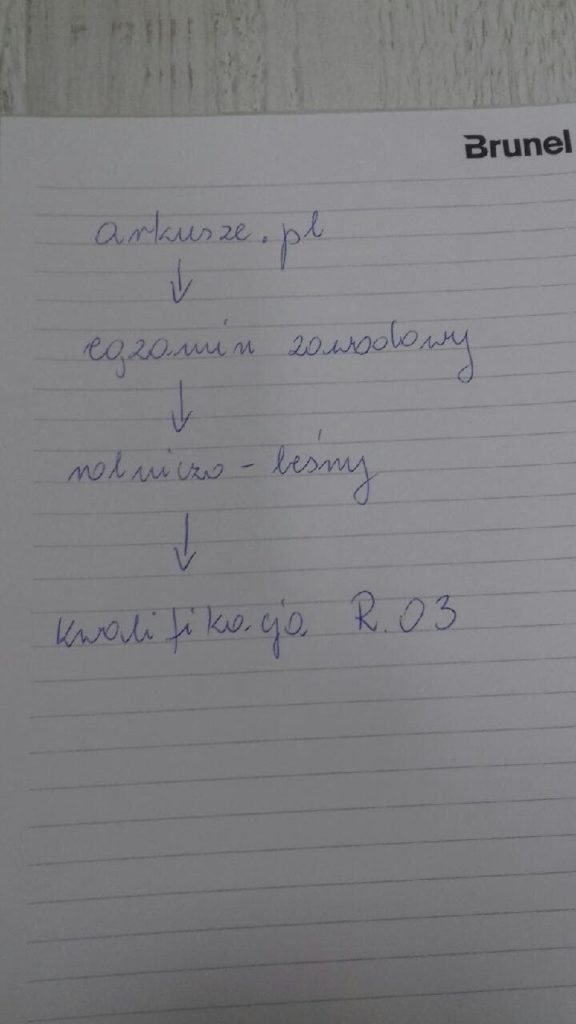 Brunel
arkusze.pl
↓
egzamin zawodowy
↓
rolniczo - leśny
↓
kwalifikacja R.03